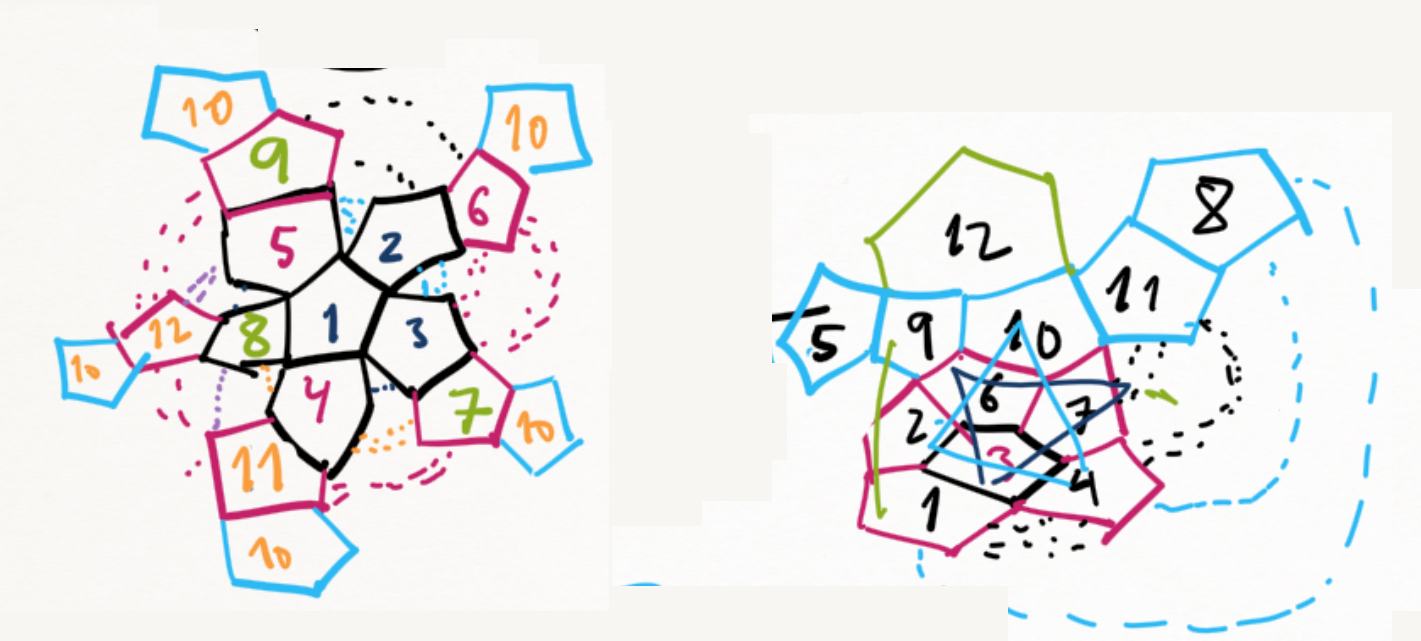 10
10
9
6
5
2
12
8
1
3
10
4
7
10
11
10
8
12
11
5
9
10
6
7
2
3
4
1